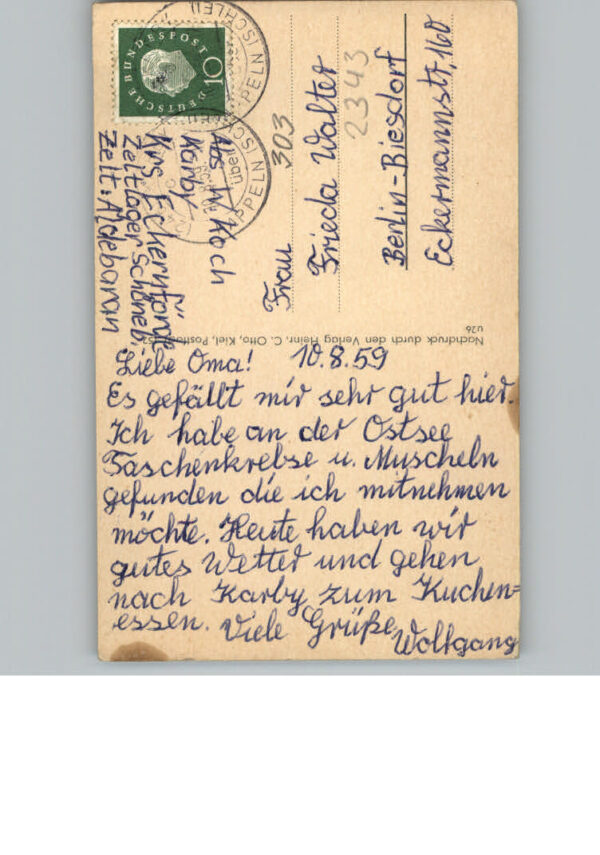 DEUTSCHE BUNDESPOST
10
Abs W. Koch
Karby
Krs Eckernförde
Zeltlager Schöneb.
Zelt: Aldebaran
303
2343
Frau
Frieda Walter
Berlin-Biesdorf
Eckermannstr. 160
Nachdruck durch den Verlag Heinr. C. Otto, Kiel,
u26
Liebe Oma! 10.8.59
Es gefällt mir sehr gut hier.
Ich habe an der Ostsee
Taschenkrebse u. Muscheln
gefunden die ich mitnehmen
möchte. Heute haben wir
gutes Wetter und gehen
nach Karby zum Kuchen=
essen. Viele Grüße
Wolfgang